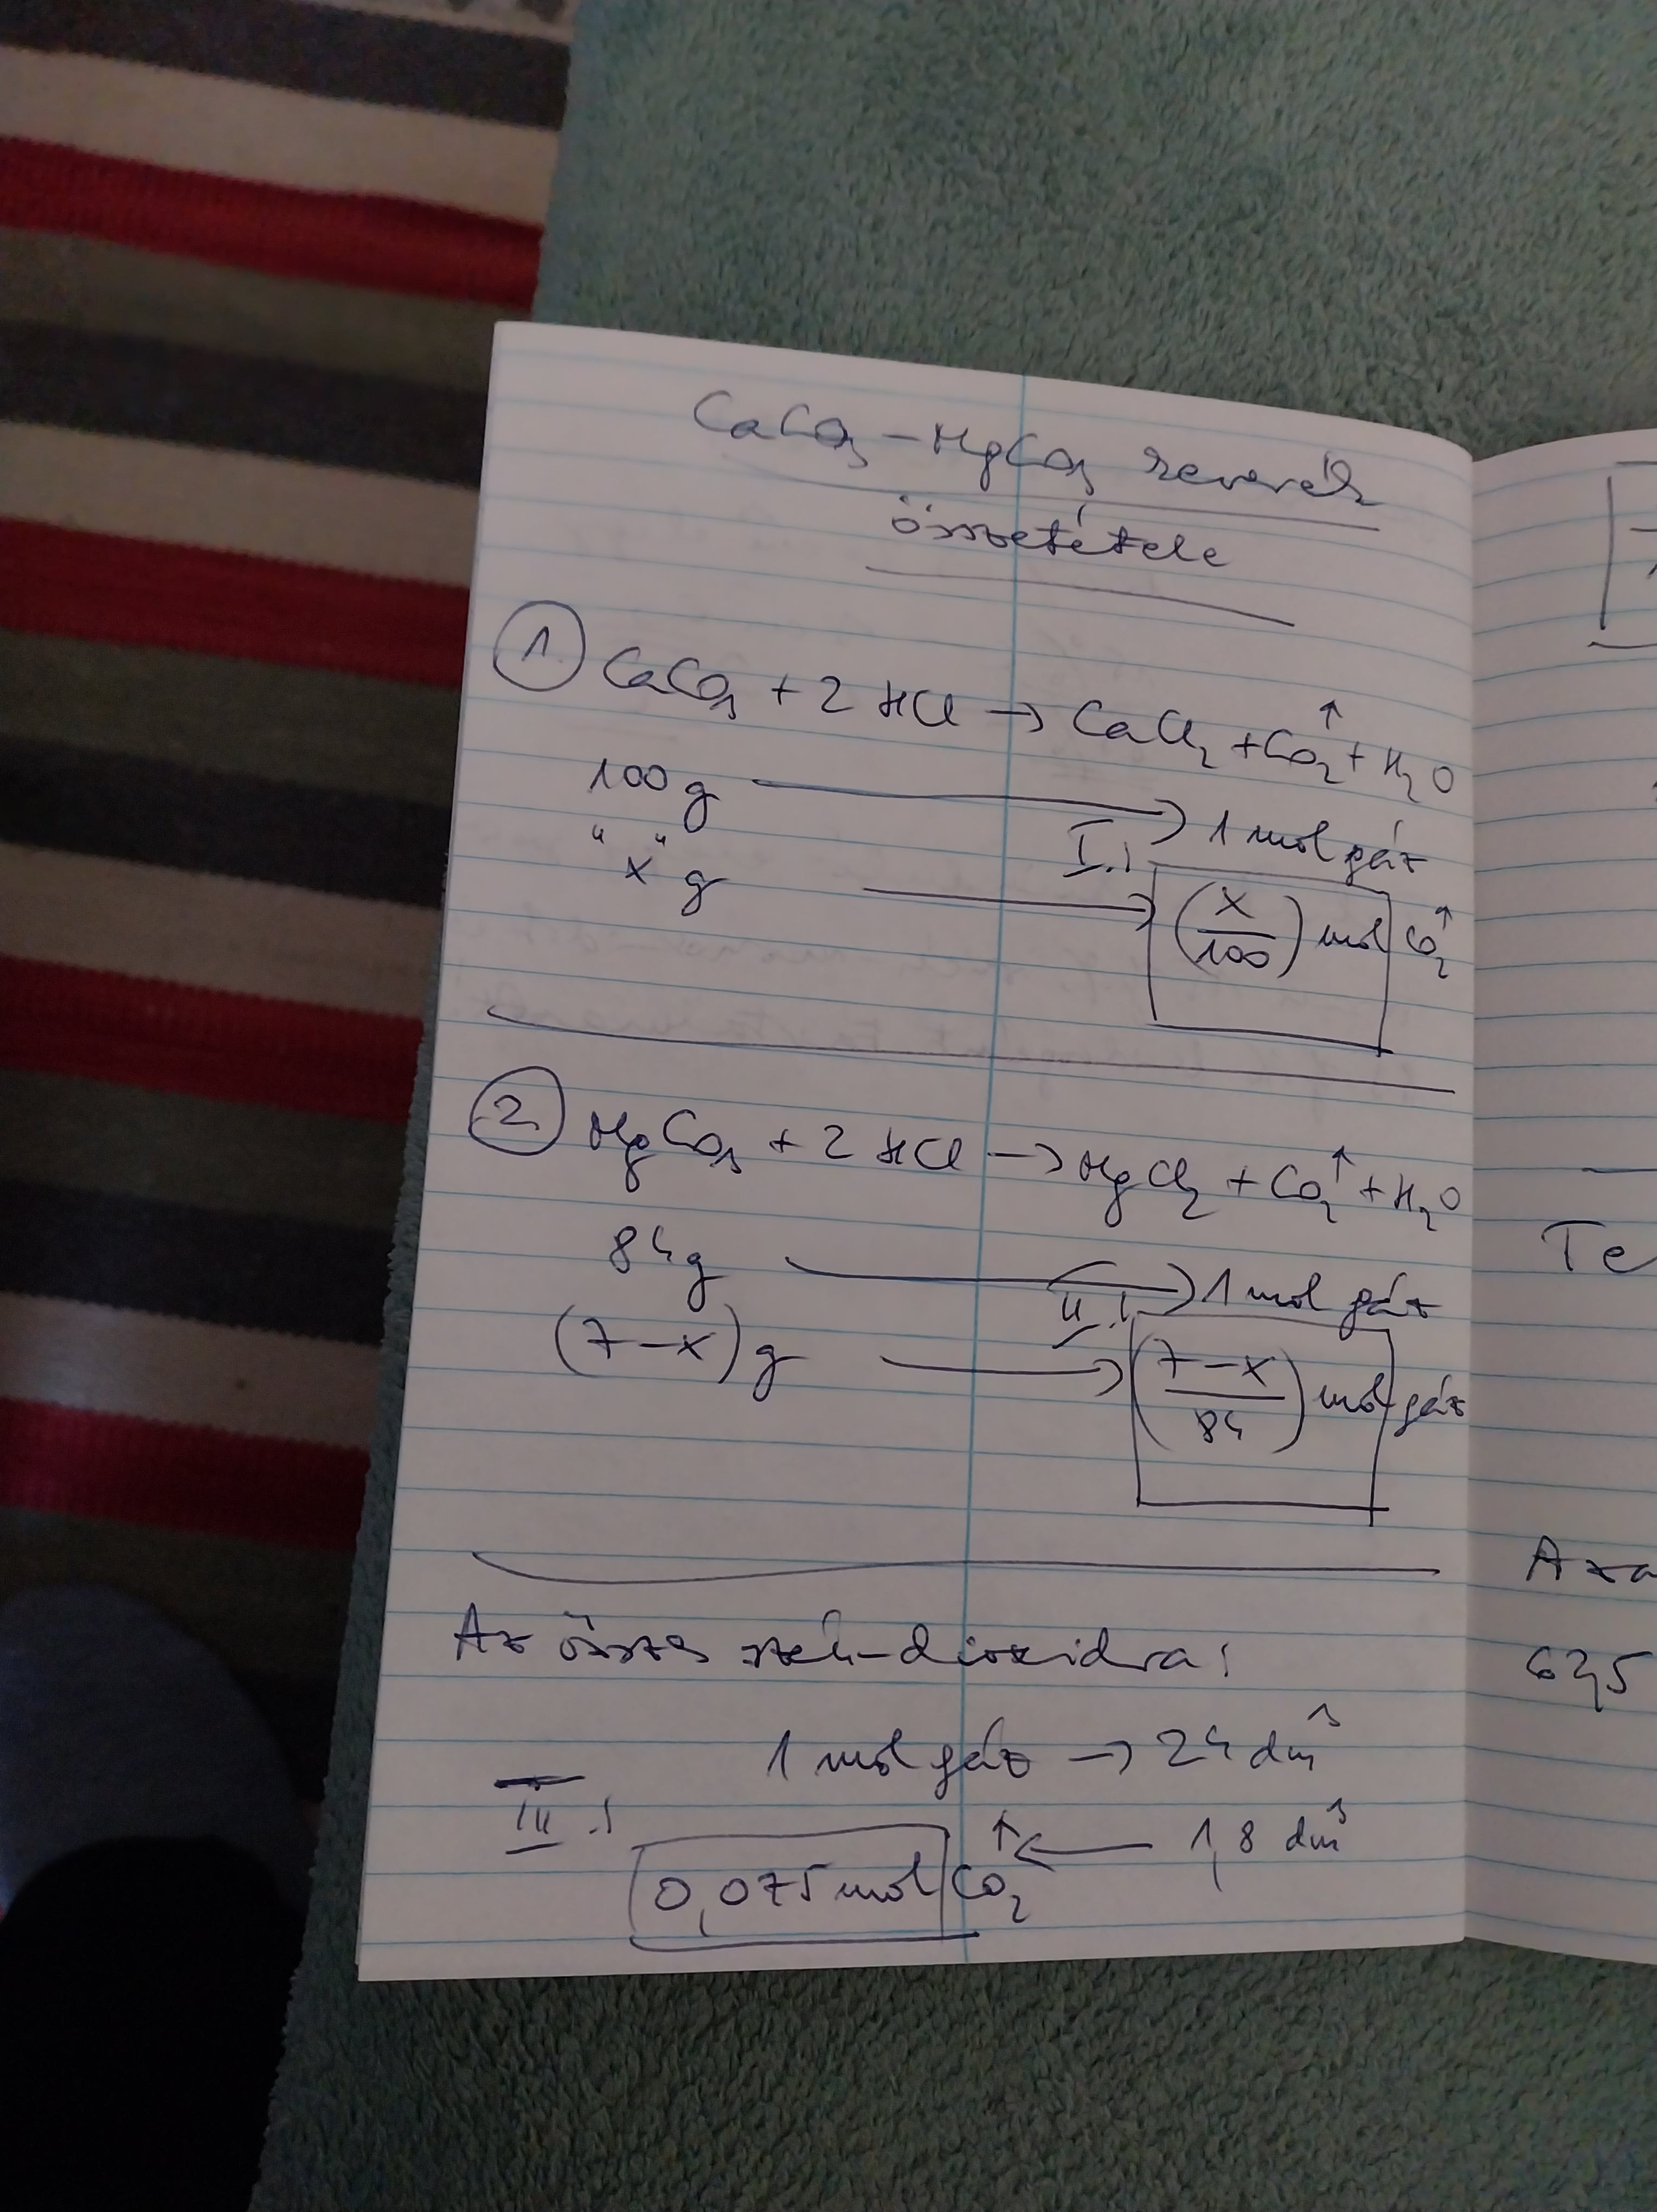 CaCO3 – MgCO3 keverék
összetétele
1. CaCO3 + 2 HCl → CaCl2 + CO2↑ + H2O
100 g → 1 mol gáz
"x" g → I.: (x/100) mol CO2↑
2. MgCO3 + 2 HCl → MgCl2 + CO2↑ + H2O
84 g → 1 mol gáz
(7–x) g → II.: (7–x/84) mol gáz
Az összes szén-dioxidra:
1 mol gáz → 24 dm3
III.: 0,075 mol CO2↑ ← 1,8 dm3
Te
62,5